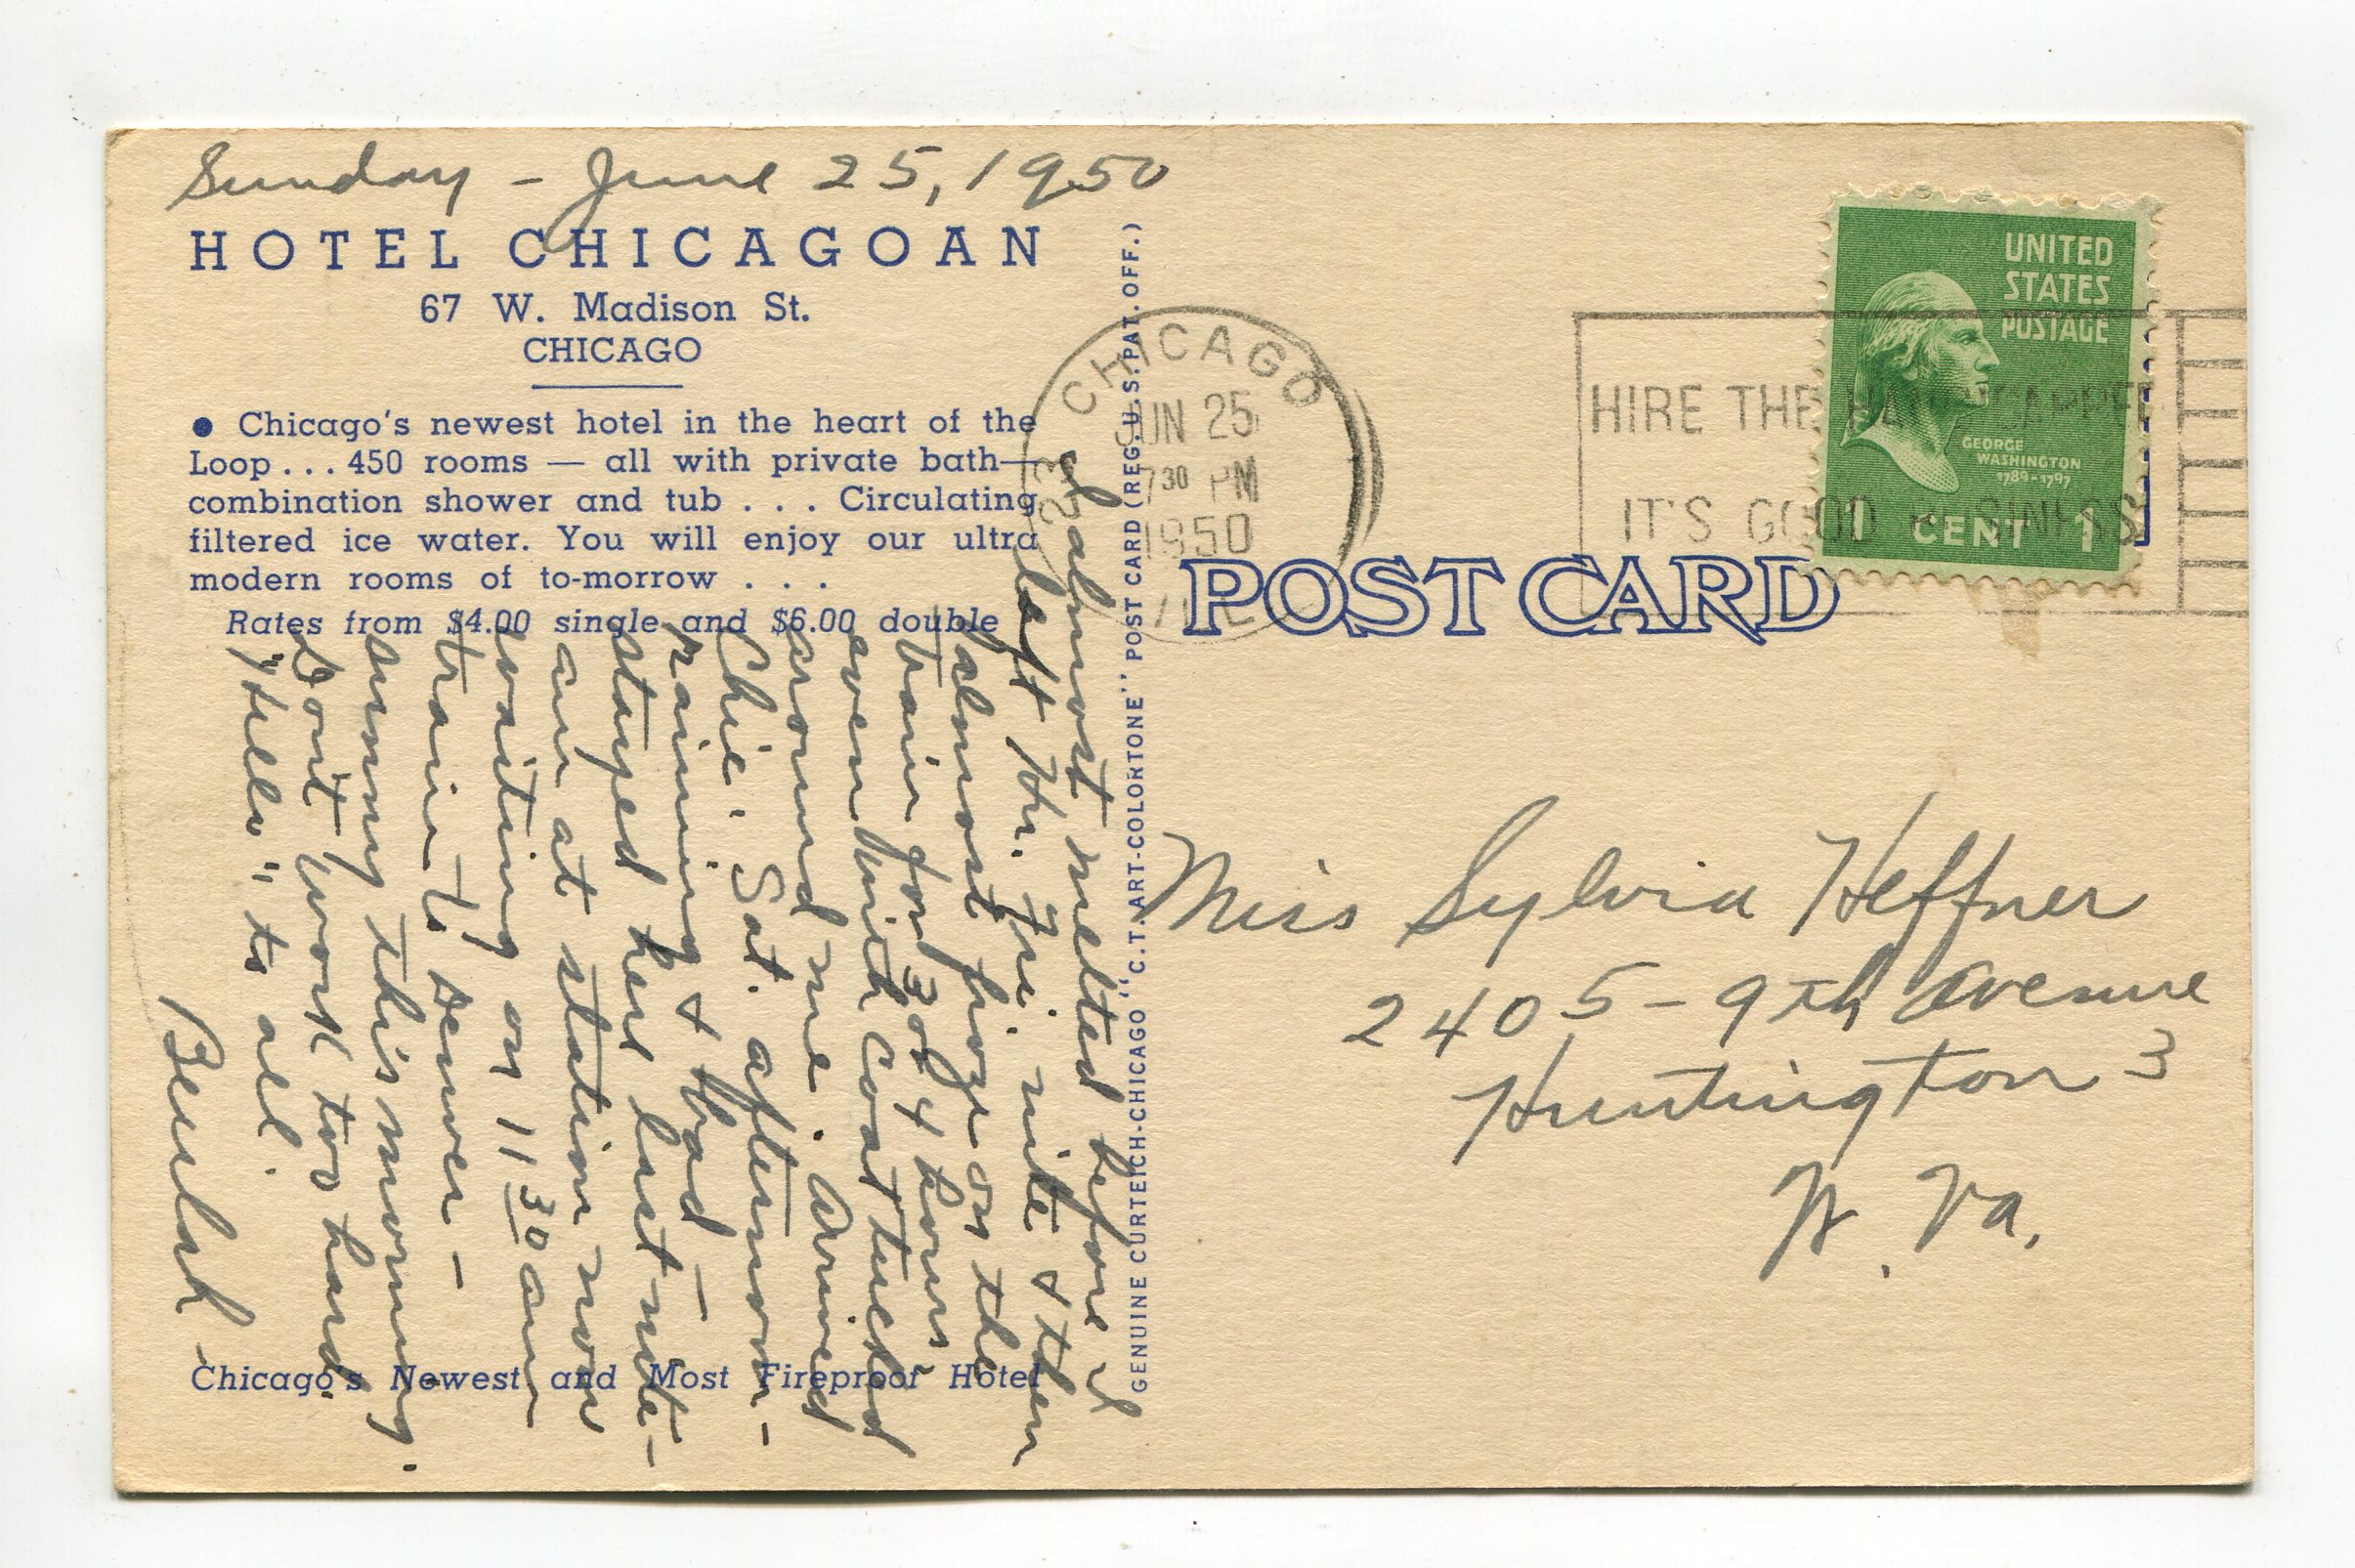 Sunday - June 25, 1950
HOTEL CHICAGOAN
67 W. Madison St.
CHICAGO
● Chicago's newest hotel in the heart of the
Loop . . . 450 rooms — all with private bath—
combination shower and tub . . . Circulating
filtered ice water. You will enjoy our ultra
modern rooms of to-morrow . . .
Rates from $4.00 single and $6.00 double
I almost melted before I
left Hn. Fri. nite & then
almost froze on the
train for 3 or 4 hours
even with coat tucked
around me. Arrived
Chic. Sat. afternoon -
raining & bad -
stayed here last nite -
am at station now
waiting on 11 30 am
train to Denver -
Sunny this morning.
Don't work too hard.
"Hello" to all.
Beulah -
Chicago's Newest and Most Fireproof Hotel
GENUINE CURTEICH-CHICAGO "C.T. ART-COLORTONE" POST CARD (REG. U.S. PAT. OFF.)
CHICAGO
JUN 25
7 30 PM
1950
ILL
HIRE THE HANDICAPPED
IT'S GOOD BUSINESS
UNITED
STATES
POSTAGE
GEORGE
WASHINGTON
1789-1797
1 CENT 1
POST CARD
Miss Sylvia Heffner
2405 - 9th Avenue
Huntington 3
W. Va.